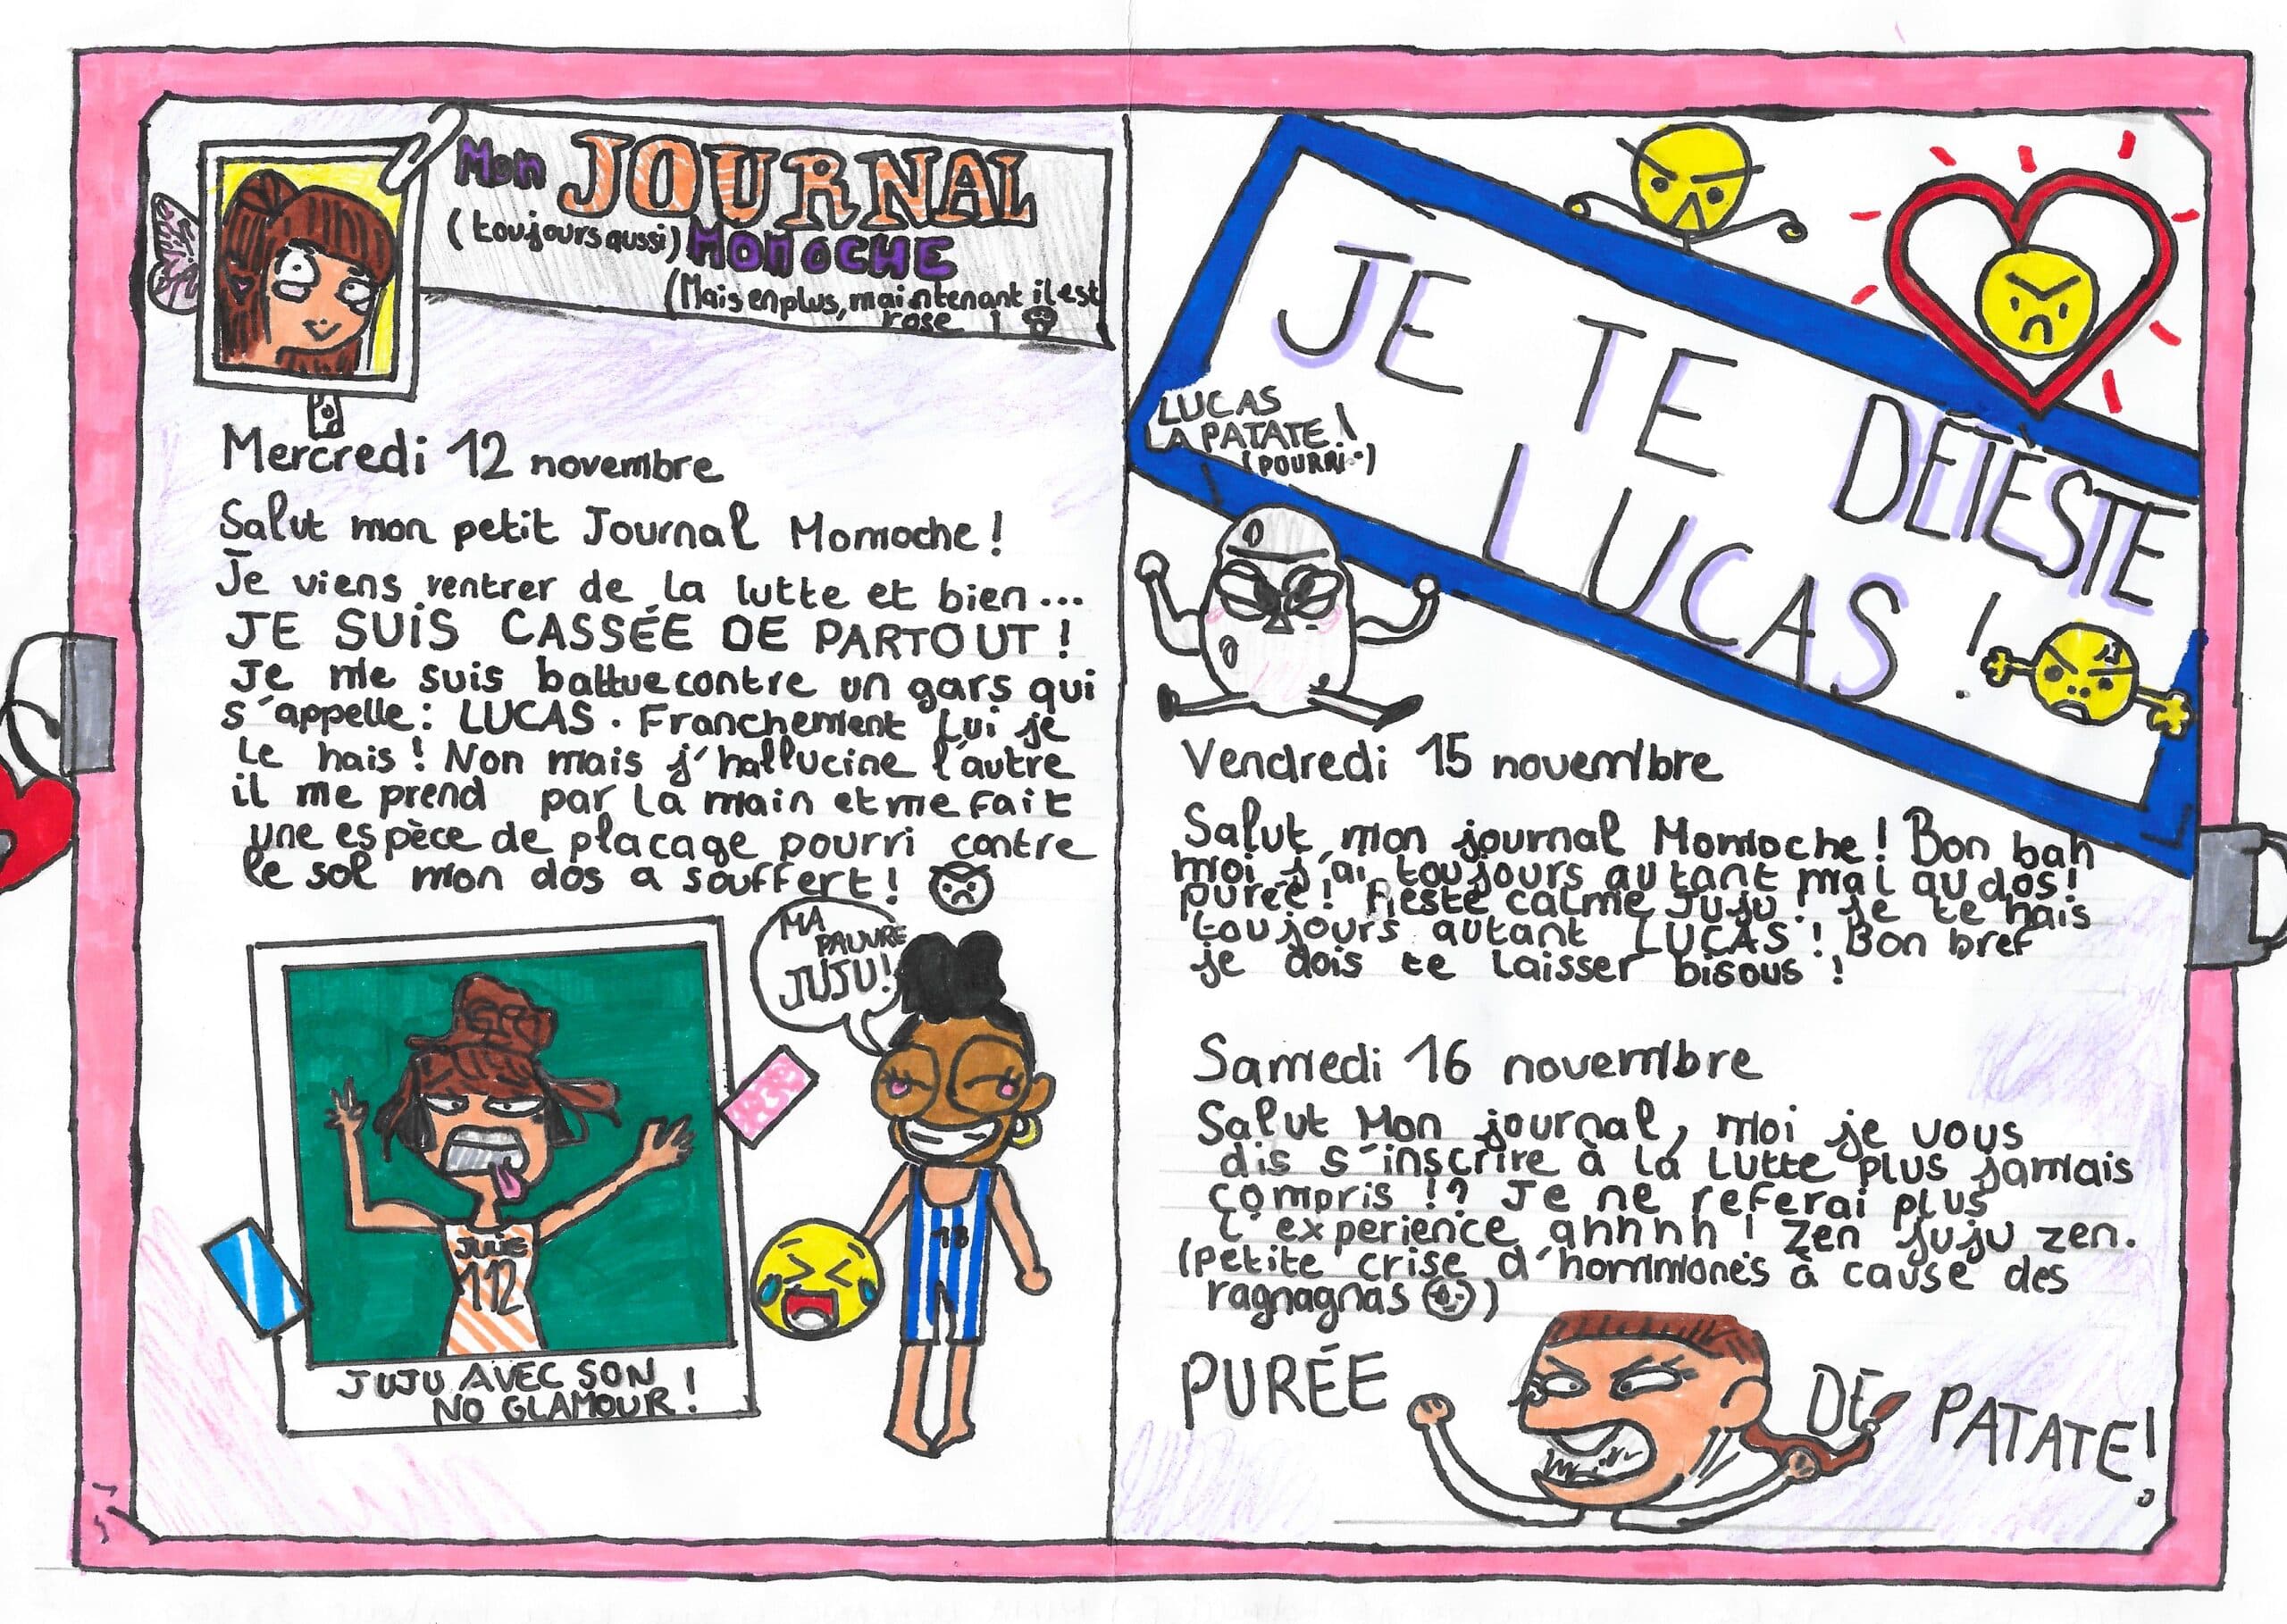 Mon JOURNAL
(toujours aussi) MOMOCHE
(Mais en plus, maintenant il est
rose !
Mercredi 12 novembre
Salut mon petit Journal Momoche !
Je viens rentrer de la lutte et bien...
JE SUIS CASSÉE DE PARTOUT !
Je me suis battue contre un gars qui
s'appelle : LUCAS. Franchement Lui je
le hais ! Non mais j'hallucine l'autre
il me prend par la main et me fait
une espèce de placage pourri contre
le sol mon dos a souffert !
MA
PAUVRE
JUJU !
JULIE
112
18
JUJU AVEC SON
NO GLAMOUR !
JE TE DÉTÈSTE
LUCAS !
LUCAS
LA PATATE !
(POURRI)
Vendredi 15 novembre
Salut mon journal Momoche ! Bon bah
moi j'ai toujours autant mal au dos !
purée ! Reste calme Juju ! je te hais
toujours autant LUCAS ! Bon bref
je dois te laisser bisous !
Samedi 16 novembre
Salut Mon journal, moi je vous
dis s'inscrire à la lutte plus jamais
compris !? Je ne referai plus
l'experience ahhhh ! Zen juju zen.
(petite crise d'hormmones à cause des
ragnagnas )
PURÉE DE PATATE !